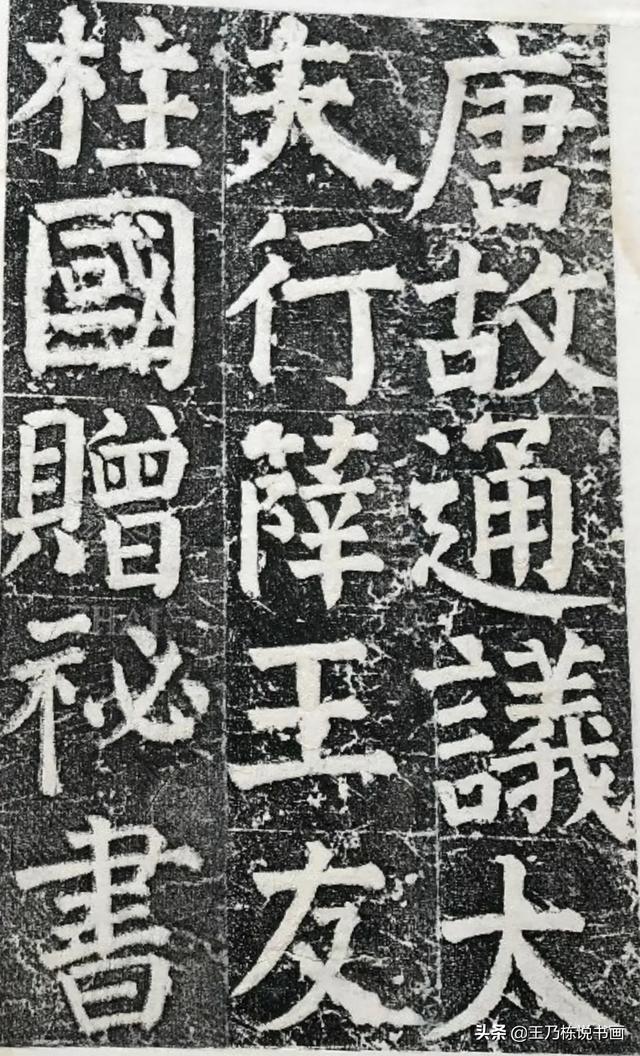 唐故通議大
夫行薛王友
柱國贈祕書
头条 @王乃栋说书画